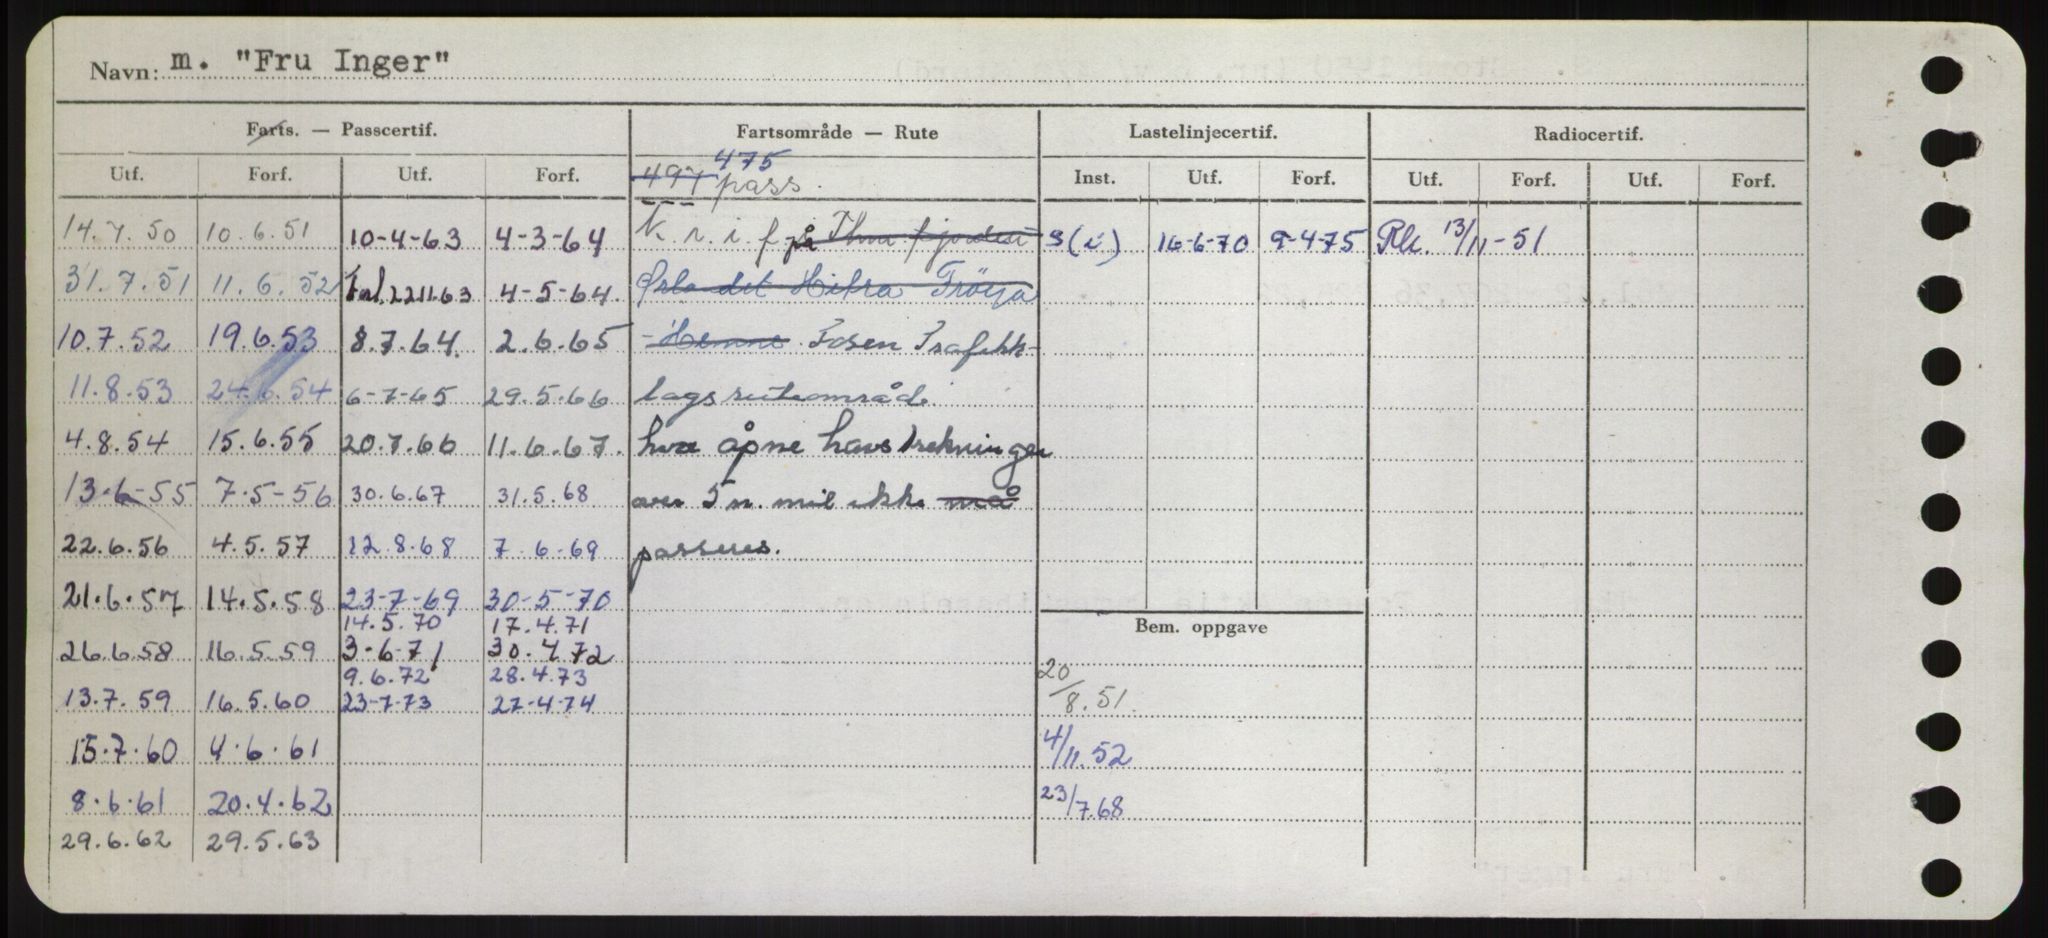 Navn: m. "Fru Inger"
Farts. — Passcertif. Fartsområde — Rute Lastelinjecertif. Radiocertif.
475
Utf. Forf. Utf. Forf. 497 pass. Inst. Utf. Forf. Utf. Forf. Utf. Forf.
14.7.50 10.6.51 10-4-63 4-3-64 K. r. i. f på Thm. fjorden S(i) 16-6-70 9-4-75 Rk. 13/11-51
31.7.51 11.6.52 22.11.63 4-5-64. Ørlandet Hitra Fröya
10.7.52 19.6.53 8.7.64. 2.6.65 - Hemne. Fosen Trafikk-
11.8.53 24.6.54 6-7-65 29.5.66 lags ruteområde
4.8.54 15.6.55 20.7.66 11.6.67. hvor åpne havstrekninger
13-6-55 7-5-56 30.6.67 31.5.68 over 5 n. mil ikke må
22.6.56 4.5.57 12.8.68 7.6-69 passeres.
21.6.57 14.5.58 23-7-69 30-5-70
14.5.70 17.4.71 Bem. oppgave
26.6.58 16.5.59 3-6-71 30.4.72
9.6.72 28.4.73 20/8.51
13.7.59 16.5.60 23-7-73 27-4-74
15.7.60 4.6.61 4/11.52
8.6.61 20.4.62 23/7.68
29.6.62 29.5.63